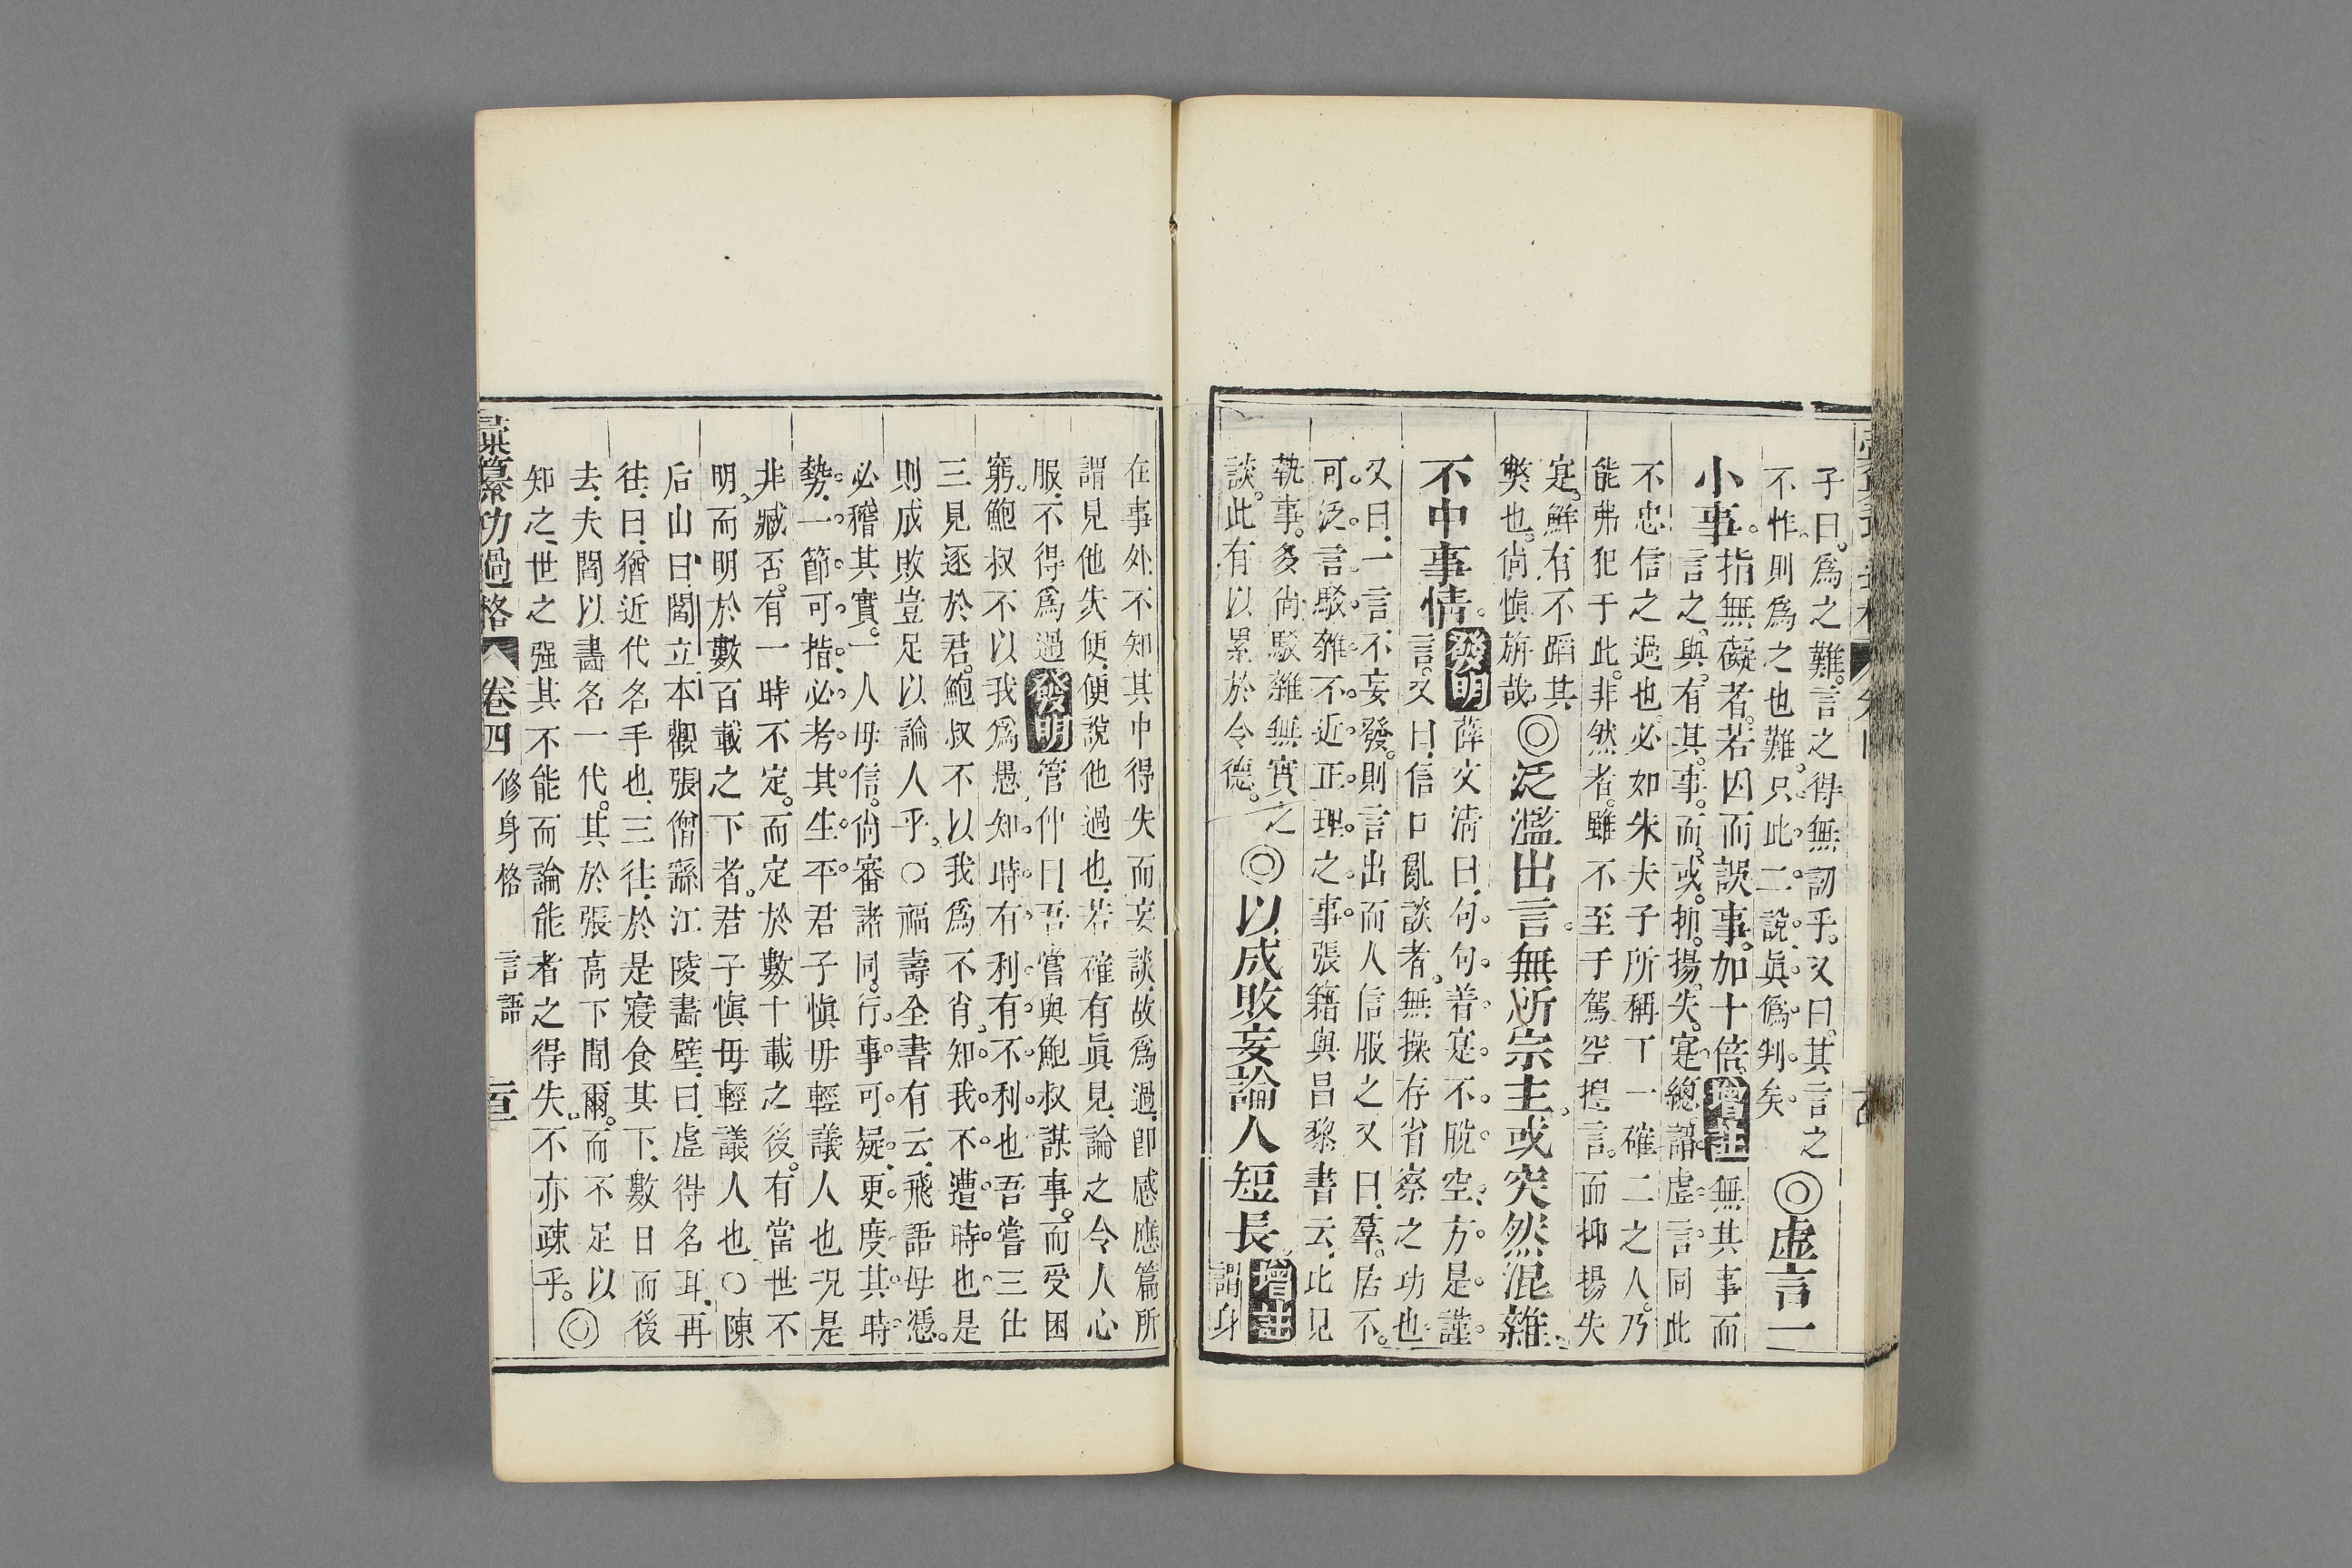 子曰爲之難言之得無訒乎又曰其言之
不怍則爲之也難只此二說眞僞判矣
◎虛言一
小事
指無礙者若因而誤事加十倍增註無其事而
言之與有其事而或抑揚失寔總謂虛言同此
不忠信之過也必如朱夫子所稱丁一確二之人乃
能弗犯于此非然者雖不至于駕空揑言而抑揚失
寔鮮有不蹈其
獘也尙愼旃哉
◎泛濫出言無所宗主或突然混雜
不中事情
發明薛文淸曰句句着寔不脫空方是謹
言又曰信口亂談者無操存省察之功也
又曰一言不妄發則言出而人信服之又曰羣居不
可泛言駁雜不近正理之事張籍與昌黎書云此見
執事多尙駁雜無實之
談此有以累於令德
◎以成敗妄論人短長
增註
謂身
在事外不知其中得失而妄談故爲過卽感應篇所
謂見他失便便說他過也若確有眞見論之令人心
服不得爲過發明管仲曰吾嘗與鮑叔謀事而受困
窮鮑叔不以我爲愚知時有利有不利也吾嘗三仕
三見逐於君鮑叔不以我爲不肖知我不遭時也是
則成敗豈足以論人乎○福壽全書有云飛語毋憑
必稽其實一人毋信尙審諸同行事可疑更度其時
勢一節可指必考其生平君子愼毋輕議人也況是
非臧否有一時不定而定於數十載之後有當世不
明而明於數百載之下者君子愼毋輕議人也○陳
后山曰閻立本觀張僧繇江陵畵壁曰虛得名耳再
往曰猶近代名手也三往於是寢食其下數日而後
去夫閻以畵名一代其於張高下間爾而不足以
知之世之強其不能而論能者之得失不亦疎乎◎
彙纂功過格 卷四 修身格 言語